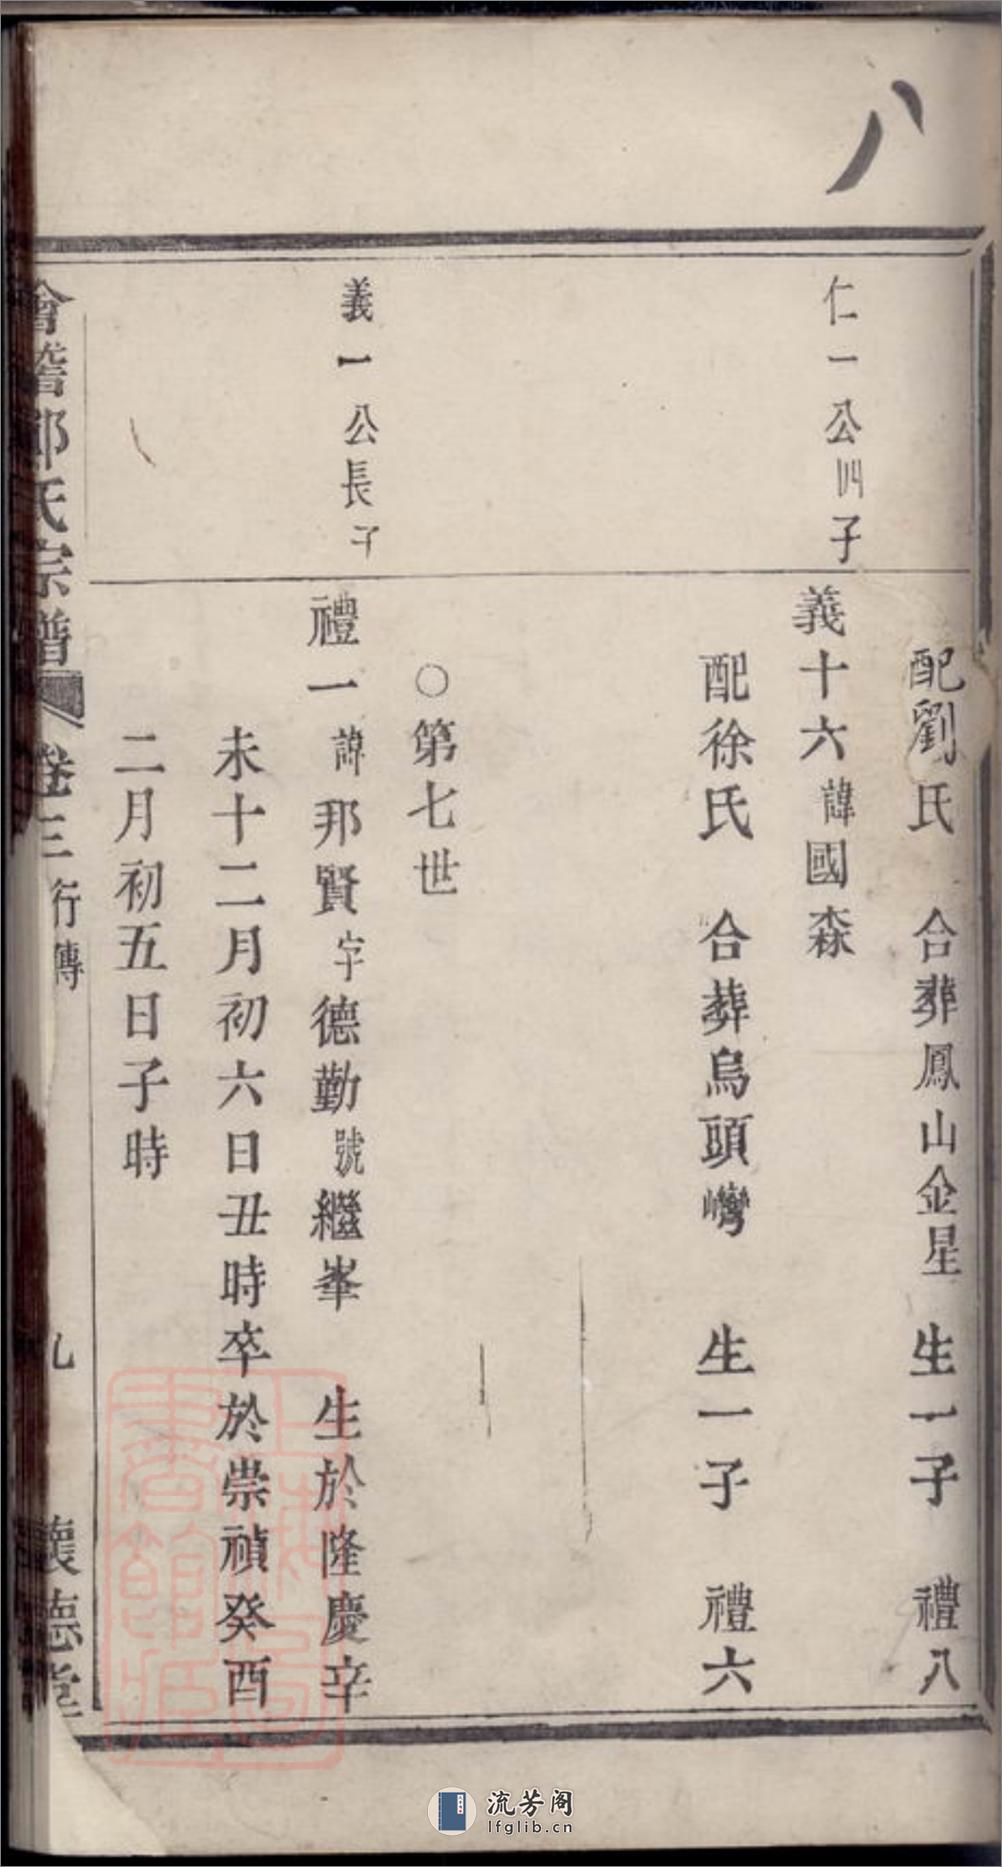 八
配劉氏　合葬鳳山金星　生一子　禮八
仁一公四子
義十六諱國森
配徐氏　合葬烏頭巒　生一子　禮六
○第七世
義一公長子
禮一諱邦賢字德勤號繼峯　生於隆慶辛
未十二月初六日丑時卒於崇禎癸酉
二月初五日子時
會稽氏宗譜　卷三　行傳　九　懷德堂
流芳阁
lfglib.cn